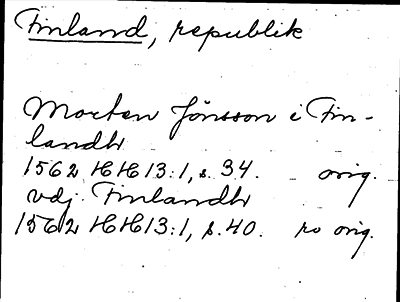 Finland, republik
Morten Jönsson i Fin-
landh
1562 HH13:1, s. 34. orig.
vdj Finlandh
1562 HH13:1, s. 40. ro orig.